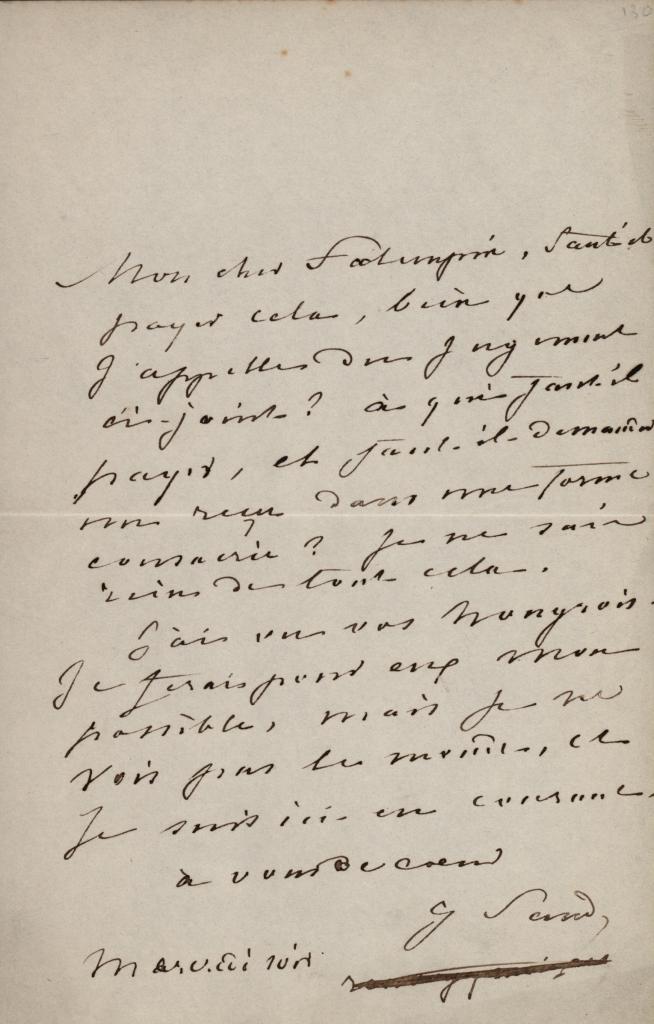 130
Mon cher Falempin, faut-il
payer cela, bien que
j'appelle du jugement
ci-joint? à qui faut-il
payer, et faut-il demander
un reçu dans une forme
consacrée? Je ne sais
rien de tout cela.
J'ai vu vos hongrois.
Je ferais pour eux mon
possible, mais je ne
vois pas le moment, et
je suis ici en courant.
à vous de coeur
G Sand
Mercredi soir